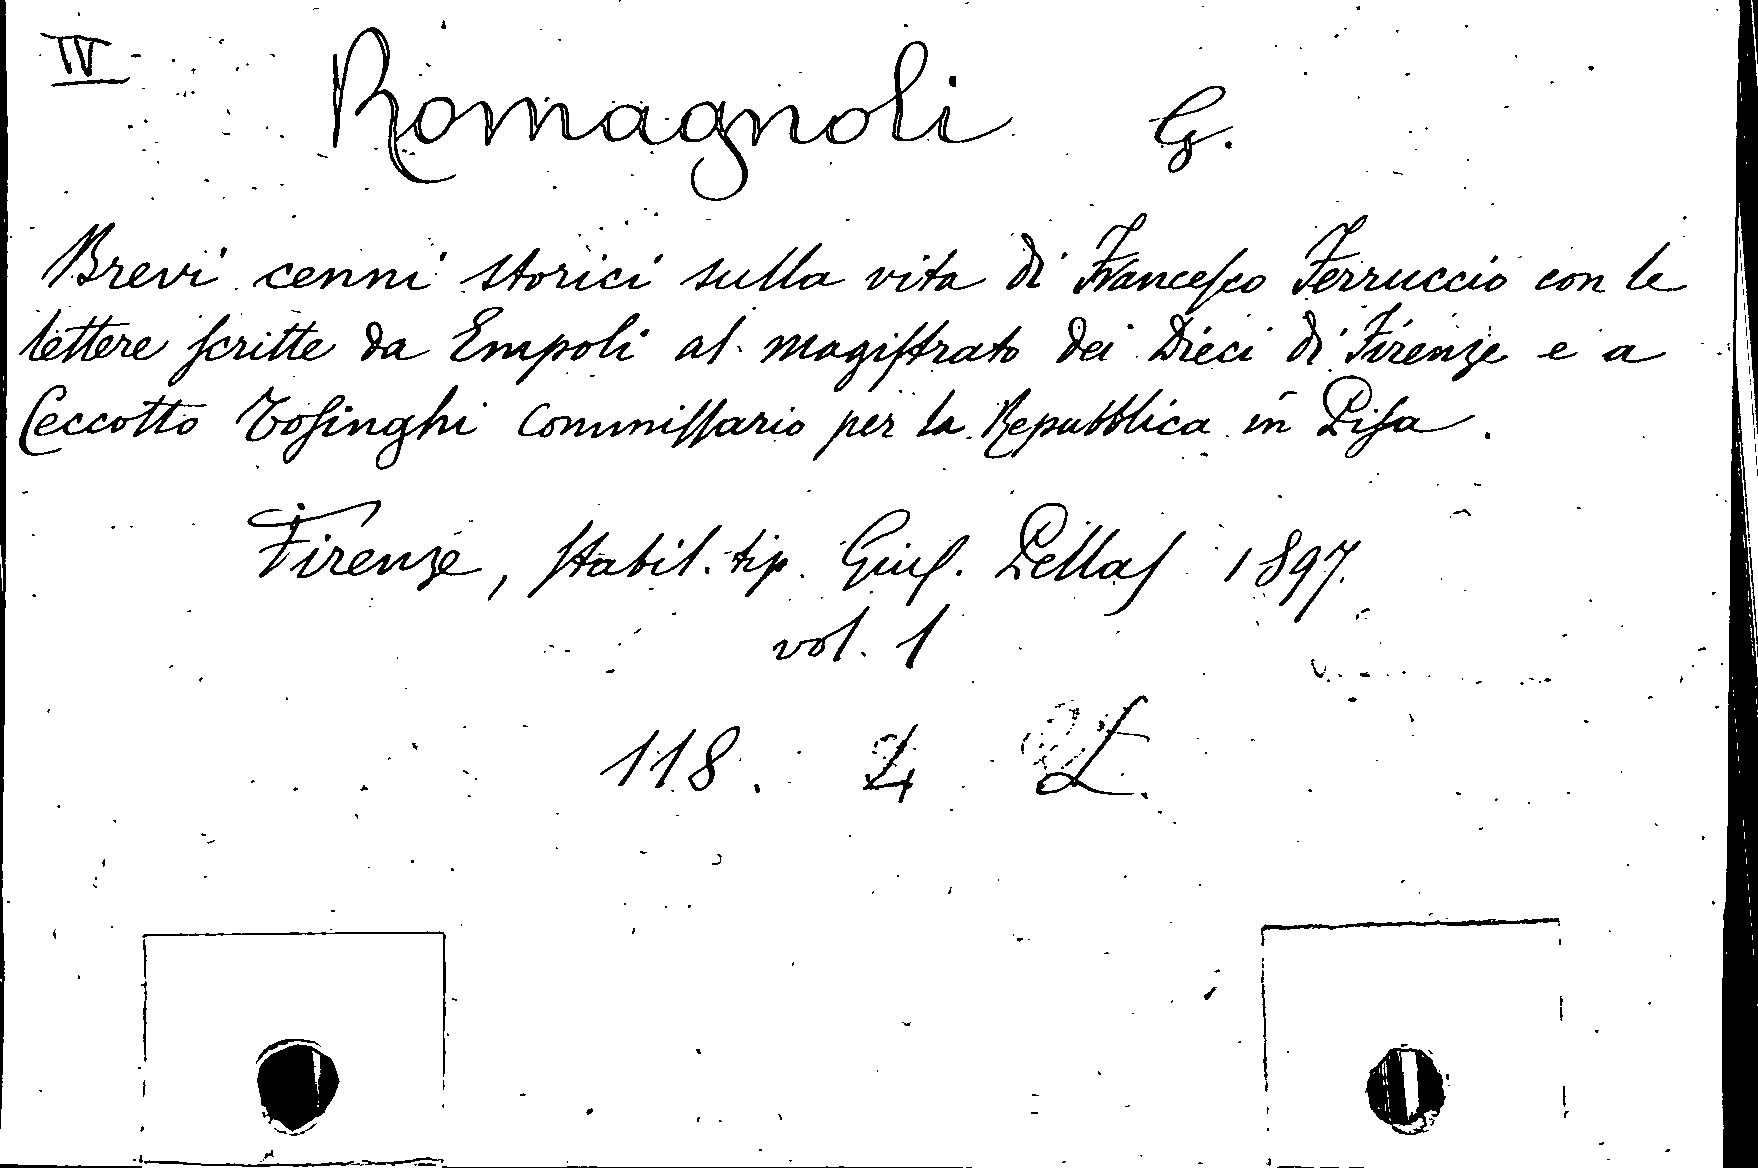 IV
Romagnoli G.
Brevi cenni storici sulla vita di Francesco Ferruccio con le
lettere scritte da Empoli al magistrato dei Dieci di Firenze e a
Ceccotto Tosinghi commissario per la Repubblica in Pisa.
Firenze, stabil. tip. Gius. Pellas 1897.
vol. 1
118. 4 L.